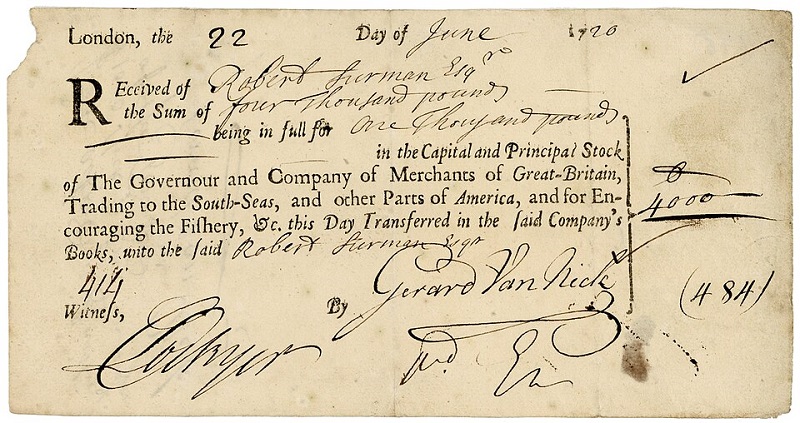 London, the 22 Day of June 1720
REceived of Robert Surman Esqr
the Sum of four Thousand pounds
being in full for One Thousand pounds
in the Capital and Principal Stock
of The Governour and Company of Merchants of Great-Britain,
Trading to the South-Seas, and other Parts of America, and for En-
couraging the Fiſhery, &c. this Day Transferred in the ſaid Company's
Books, unto the ſaid Robert Surman Esqr
4000
414
Witneſs, By Gerard Van Neck
(484)
Lockyer